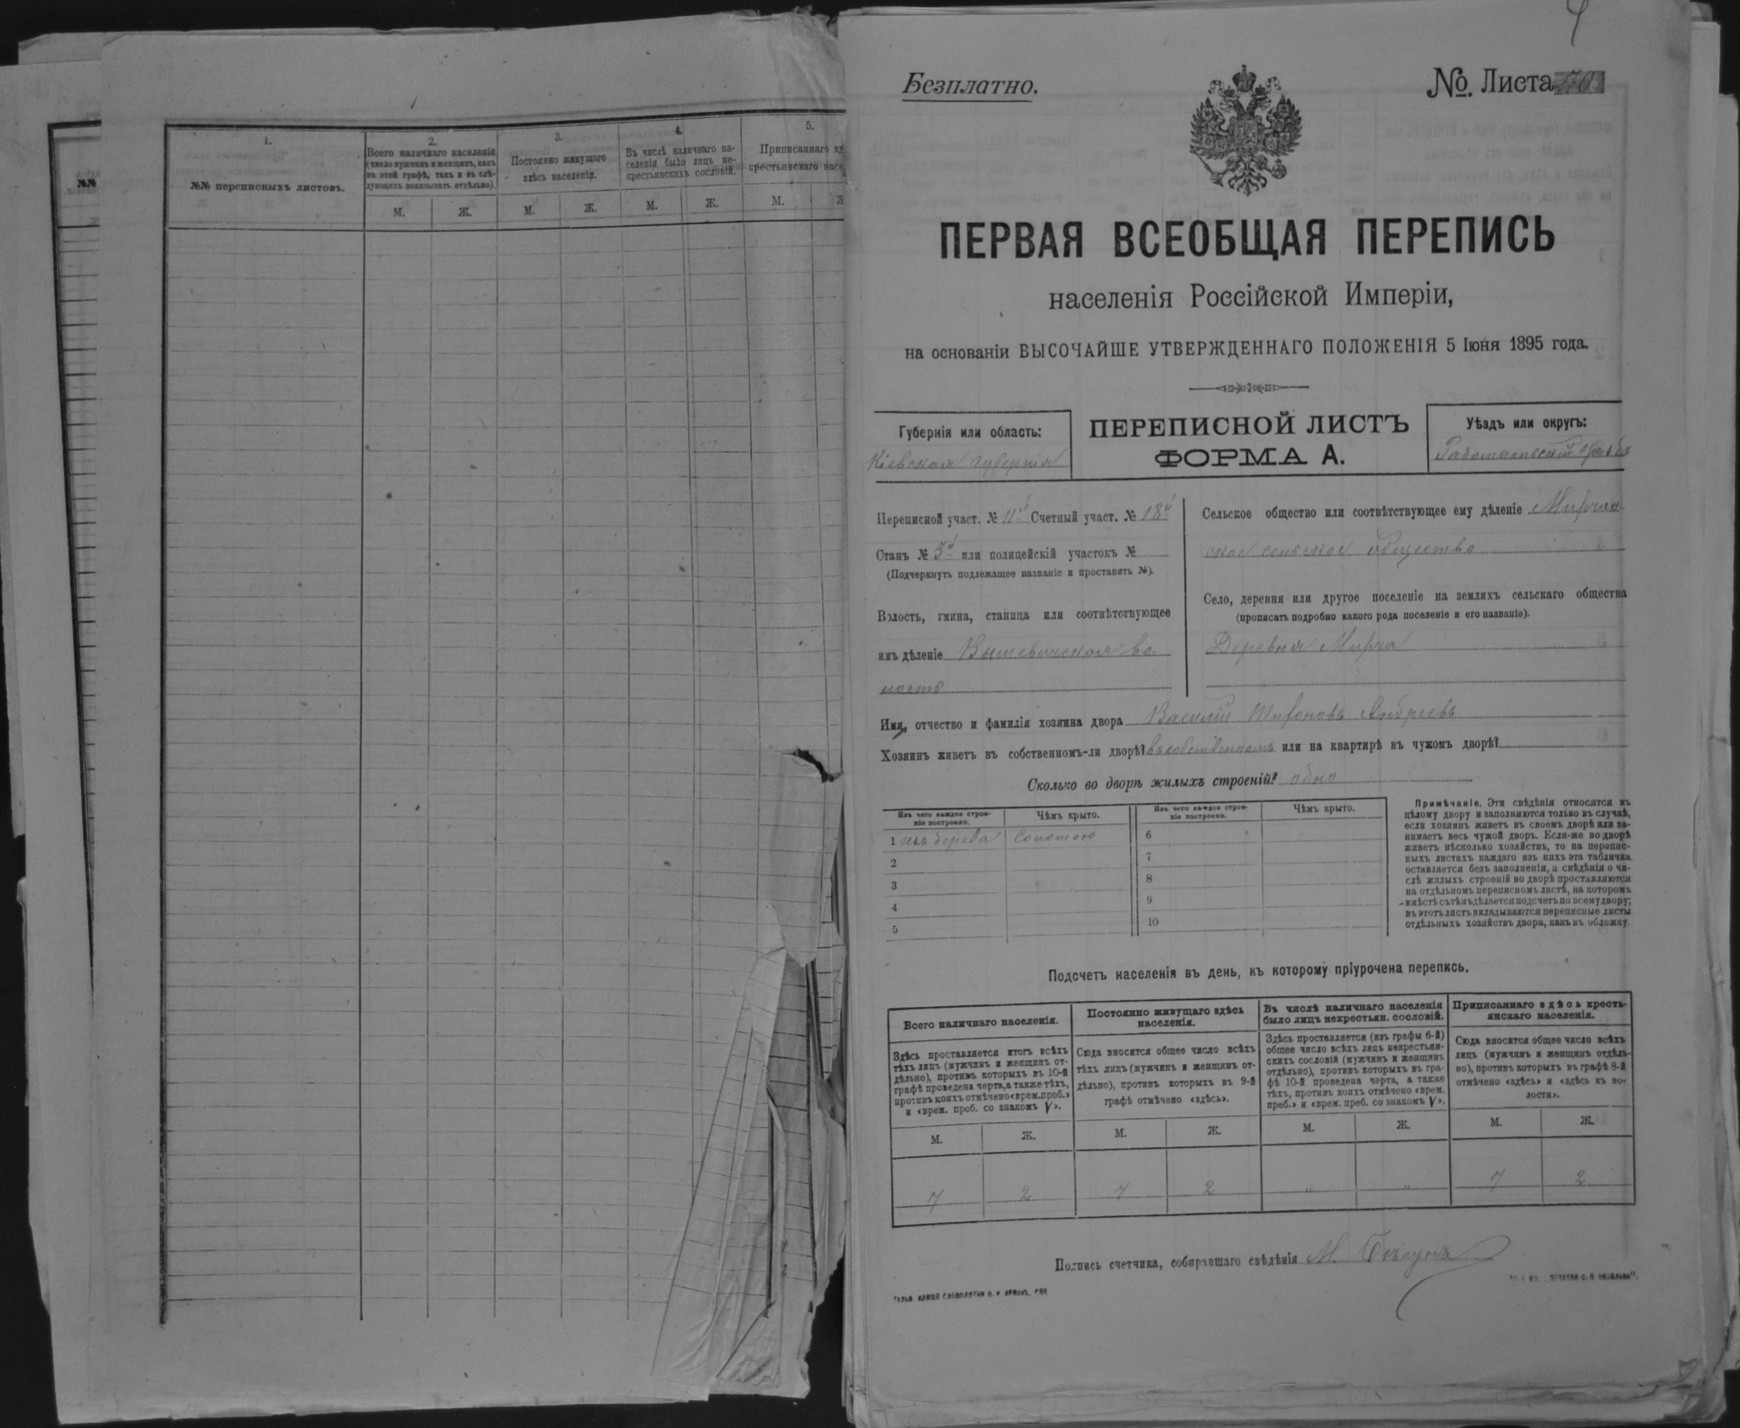 №№
1.
№№ переписныхъ листовъ.
2.
Всего наличнаго населенія
(число мужчинъ и женщинъ, какъ
въ этой графѣ, такъ и въ слѣ-
дующихъ показывать отдѣльно).
М. Ж.
3.
Постоянно живущаго
здѣсь населенія.
М. Ж.
4.
Въ числѣ наличнаго на-
селенія было лицъ не-
крестьянскихъ сословій.
М. Ж.
5.
Приписаннаго
крестьянскаго
М.
Безплатно.
№. Листа
ПЕРВАЯ ВСЕОБЩАЯ ПЕРЕПИСЬ
населенія Россійской Имперіи,
на основаніи ВЫСОЧАЙШЕ УТВЕРЖДЕННАГО ПОЛОЖЕНІЯ 5 Іюня 1895 года.
Губернія или область:
Кіевская губернія
ПЕРЕПИСНОЙ ЛИСТЪ
ФОРМА А.
Уѣздъ или округъ:
Радомысльскій уѣздъ
Переписной участ. № 11й Счетный участ. № 18й
Станъ № 3й или полицейскій участокъ №
(Подчеркнуть подлежащее названіе и проставить №).
Волость, гмина, станица или соотвѣтствующее
имъ дѣленіе Вышевичская во
лость
Сельское общество или соотвѣтствующее ему дѣленіе Мирчан
ское сельское общество
Село, деревня или другое поселеніе на земляхъ сельскаго общества
(прописать подробно какого рода поселеніе и его названіе).
Деревня Мирча
Имя, отчество и фамилія хозяина двора Василій Андреевъ
Хозяинъ живетъ въ собственномъ-ли дворѣ? въ собственномъ или на квартирѣ въ чужомъ дворѣ?
Сколько во дворѣ жилыхъ строеній? одно
Изъ чего каждое строе-
ніе построено.
Чѣмъ крыто.
Изъ чего каждое строе-
ніе построено.
Чѣмъ крыто.
1 изъ дерева Соломою
2
3
4
5
6
7
8
9
10
Примѣчаніе. Эти свѣдѣнія относятся къ
цѣлому двору и заполняются только въ случаѣ,
если хозяинъ живетъ въ своемъ дворѣ или за-
нимаетъ весь чужой дворъ. Если-же во дворѣ
живетъ нѣсколько хозяйствъ, то на перепис-
ныхъ листахъ каждаго изъ нихъ эта табличка
оставляется безъ заполненія, а свѣдѣнія о чи-
слѣ жилыхъ строеній во дворѣ проставляются
на отдѣльномъ переписномъ листѣ, на которомъ
вмѣстѣ съ тѣмъ дѣлается подсчетъ по всему двору;
въ этотъ листъ вкладываются переписные листы
отдѣльныхъ хозяйствъ двора, какъ въ обложку.
Подсчетъ населенія въ день, къ которому пріурочена перепись.
Всего наличнаго населенія.
Здѣсь проставляется итогъ всѣхъ
тѣхъ лицъ (мужчинъ и женщинъ от-
дѣльно), противъ которыхъ въ 10-й
графѣ проведена черта, а также тѣхъ,
противъ коихъ отмѣчено «врем. преб.»
и «врем. преб. со знакомъ V».
М. Ж.
7 2
Постоянно живущаго здѣсь
населенія.
Сюда вносится общее число всѣхъ
тѣхъ лицъ (мужчинъ и женщинъ от-
дѣльно), противъ которыхъ въ 9-й
графѣ отмѣчено «здѣсь».
М. Ж.
7 2
Въ числѣ наличнаго населенія
было лицъ некрестьян. сословій.
Здѣсь проставляется (изъ графы 6-й)
общее число всѣхъ лицъ некрестьян-
скихъ сословій (мужчинъ и женщинъ
отдѣльно), противъ которыхъ въ гра-
фѣ 10-й проведена черта, а также
тѣхъ, противъ коихъ отмѣчено «врем.
преб.» и «врем. преб. со знакомъ V».
М. Ж.
" "
Приписаннаго здѣсь кресть-
янскаго населенія.
Сюда вносится общее число всѣхъ
лицъ (мужчинъ и женщинъ отдѣль-
но), противъ которыхъ въ графѣ 8-й
отмѣчено «здѣсь» и «здѣсь къ во-
лости».
М. Ж.
7 2
Подпись счетчика, собиравшаго свѣдѣнія М. Бѣгунъ